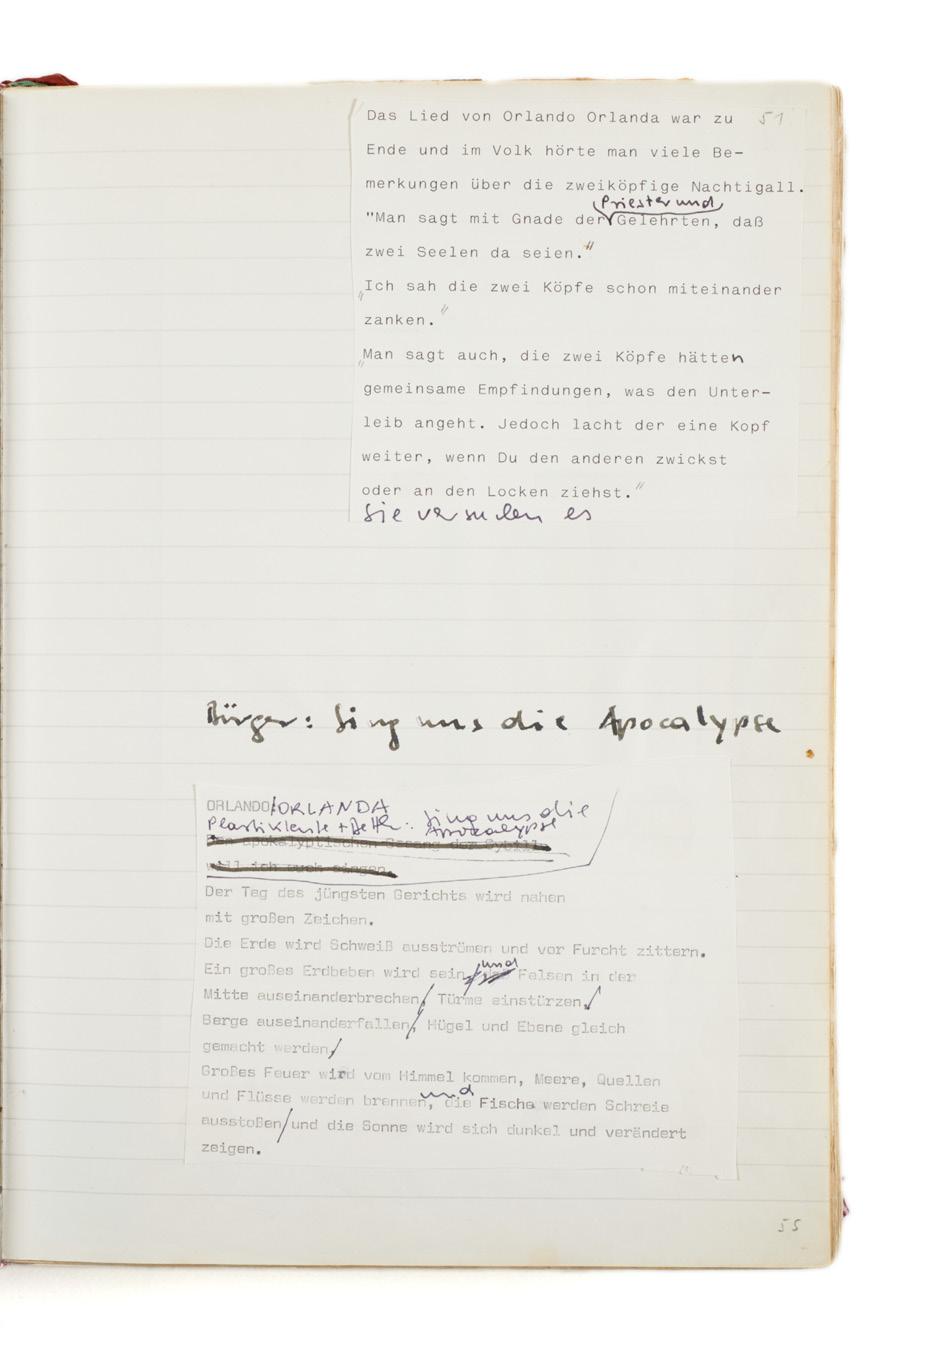 Das Lied von Orlando Orlanda war zu 51
Ende und im Volk hörte man viele Be-
merkungen über die zweiköpfige Nachtigall.
Priester und
"Man sagt mit Gnade der Gelehrten, daß
zwei Seelen da seien."
"Ich sah die zwei Köpfe schon miteinander
zanken."
"Man sagt auch, die zwei Köpfe hätten
gemeinsame Empfindungen, was den Unter-
leib angeht. Jedoch lacht der eine Kopf
weiter, wenn Du den anderen zwickst
oder an den Locken ziehst."
Sie versuchen es
Bürger: Sing uns die Apocalypse
ORLANDO/ORLANDA
Plastikleute + : Sing uns die
Apocalypse
Den apokalyptischen Gesang der Sybille
will ich euch singen.
Der Tag des jüngsten Gerichts wird nahen
mit großen Zeichen.
Die Erde wird Schweiß ausströmen und vor Furcht zittern.
und
Ein großes Erdbeben wird sein, Felsen in der
Mitte auseinanderbrechen/ Türme einstürzen/
Berge auseinanderfallen/ Hügel und Ebene gleich
gemacht werden/
Großes Feuer wird vom Himmel kommen, Meere, Quellen
und
und Flüsse werden brennen, die Fische werden Schreie
ausstoßen/und die Sonne wird sich dunkel und verändert
zeigen.
55